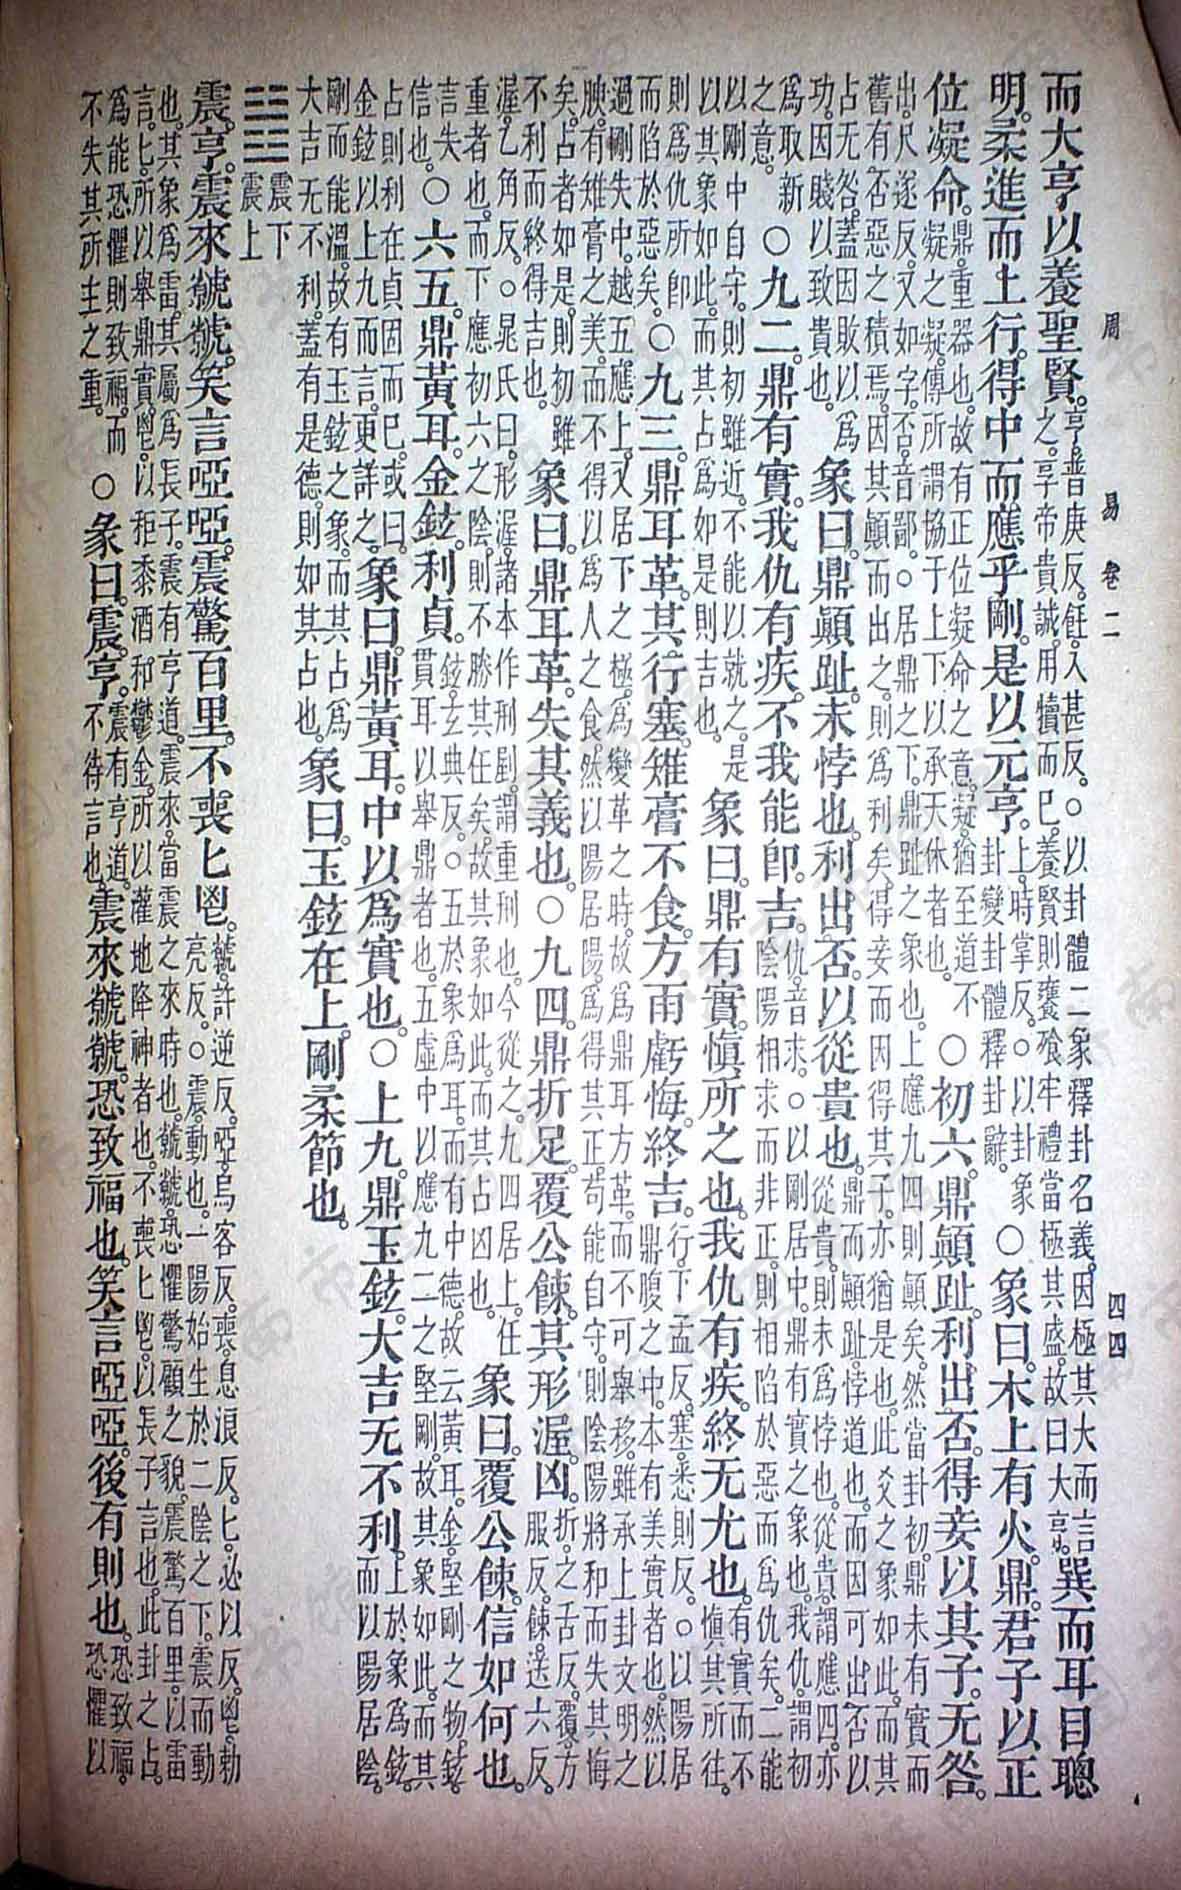 周易 卷二 四四
而大亨以養聖賢。亨。普庚反。飪。入甚反。○以卦體二象釋卦名義。因極其大而言之。享帝貴誠。用犢而已。養賢則饔飧牢禮當極其盛。故曰大亨。巽而耳目聰
明。柔進而上行。得中而應乎剛。是以元亨。上。時掌反。○以卦象卦變卦體釋卦辭。○象曰。木上有火。鼎。君子以正
位凝命。鼎。重器也。故有正位凝命之意。凝。猶至道不凝之凝。傳所謂協于上下以承天休者也。○初六。鼎顚趾。利出否。得妾以其子。无咎。
出。尺遂反。又如字。否。音鄙。○居鼎之下。鼎趾之象也。上應九四則顚矣。然當卦初。鼎未有實而
舊有否惡之積焉。因其顚而出之。則爲利矣。得妾而因得其子。亦猶是也。此爻之象如此。而其
占无咎。蓋因敗以爲功。因賤以致貴也。象曰。鼎顚趾。未悖也。利出否。以從貴也。鼎而顚趾。悖道也。而因可出否以從貴。則未爲悖也。從貴。謂應四。亦
爲取新之意。○九二。鼎有實。我仇有疾。不我能卽。吉。仇。音求。○以剛居中。鼎有實之象也。我仇。謂初。陰陽相求而非正。則相陷於惡而爲仇矣。二能
以剛中自守。則初雖近。不能以就之。是以其象如此。而其占爲如是則吉也。象曰。鼎有實。愼所之也。我仇有疾。終无尤也。有實而不愼其所往。
則爲仇所卽而陷於惡矣。○九三。鼎耳革。其行塞。雉膏不食。方雨虧悔。終吉。行。下孟反。塞。悉則反。○以陽居鼎腹之中。本有美實者也。然以
過剛失中。越五應上。又居下之極。爲變革之時。故爲鼎耳方革。而不可舉移。雖承上卦文明之
腴。有雉膏之美。而不得以爲人之食。然以陽居陽。爲得其正。苟能自守。則陰陽將和而失其悔
矣。占者如是。則初雖不利而終得吉也。象曰。鼎耳革。失其義也。○九四。鼎折足。覆公餗。其形渥。凶。折。之舌反。覆。方服反。餗。送六反。
渥。乙角反。○晁氏曰。形渥。諸本作刑剭。謂重刑也。今從之。九四居上。任
重者也。而下應初六之陰。則不勝其任矣。故其象如此。而其占凶也。象曰。覆公餗。信如何也。
言失信也。○六五。鼎黃耳。金鉉。利貞。鉉。玄典反。○五於象爲耳。而有中德。故云黃耳。金。堅剛之物。鉉。貫耳以舉鼎者也。五虛中以應九二之堅剛。故其象如此。而其
占則利在貞固而已。或曰。金鉉以上九而言。更詳之。象曰。鼎黃耳。中以爲實也。○上九。鼎玉鉉。大吉无不利。上於象爲鉉。而以陽居陰。
剛而能溫。故有玉鉉之象。而其占爲大吉无不利。蓋有是德。則如其占也。象曰。玉鉉在上。剛柔節也。
震下震上
震。亨。震來虩虩。笑言啞啞。震驚百里。不喪匕鬯。虩。許逆反。啞。烏客反。喪。息浪反。匕。必以反。鬯。勅亮反。○震。動也。一陽始生於二陰之下。震而動
也。其象爲雷。其屬爲長子。震有亨道。震來。當震之來時也。虩虩。恐懼驚顧之貌。震驚百里。以雷
言。匕。所以舉鼎實。鬯。以秬黍酒和鬱金。所以灌地降神者也。不喪匕鬯。以長子言也。此卦之占。
爲能恐懼則致福。而不失其所主之重。○彖曰。震。亨。震有亨道。不待言也。震來虩虩。恐致福也。笑言啞啞。後有則也。恐致福。恐懼以